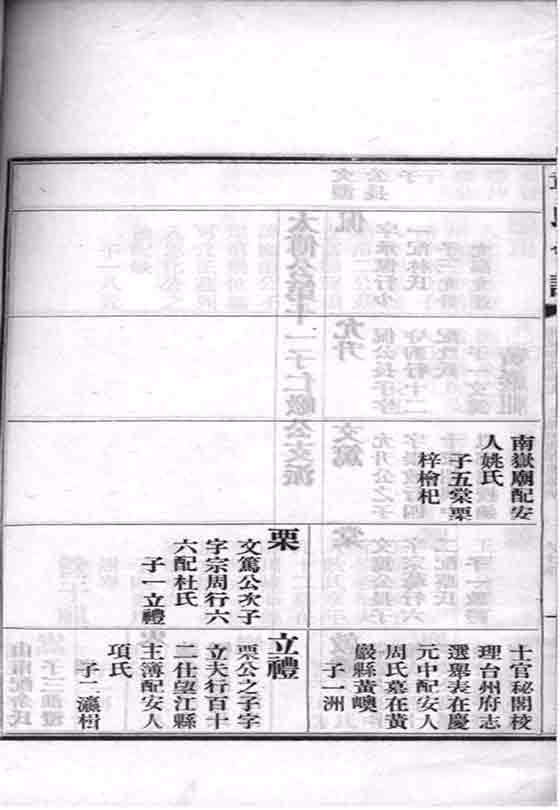 南嶽廟配安
人姚氏
子五棠栗
梓檜杞
栗
文篤公次子
字宗周行六
六配杜氏
子一立禮
士官秘閣校
理台州府志
選舉表在慶
元中配安人
周氏墓在黃
巖縣黃㠗
子一洲
立禮
栗公之子字
立夫行百十
二仕望江縣
主簿配安人
項氏
子二瀛